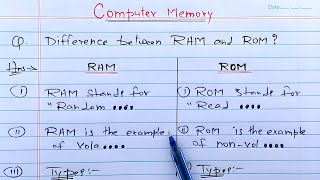 Date
Computer Memory
Q. Difference between RAM and ROM?
Ans→ RAM
ROM
(i) RAM stands for
"Random ....
(i) ROM stands for
"Read ....
(ii) RAM is the example
of vola....
(ii) ROM is the example
of non-vol....
(iii) Types:-
Types:-